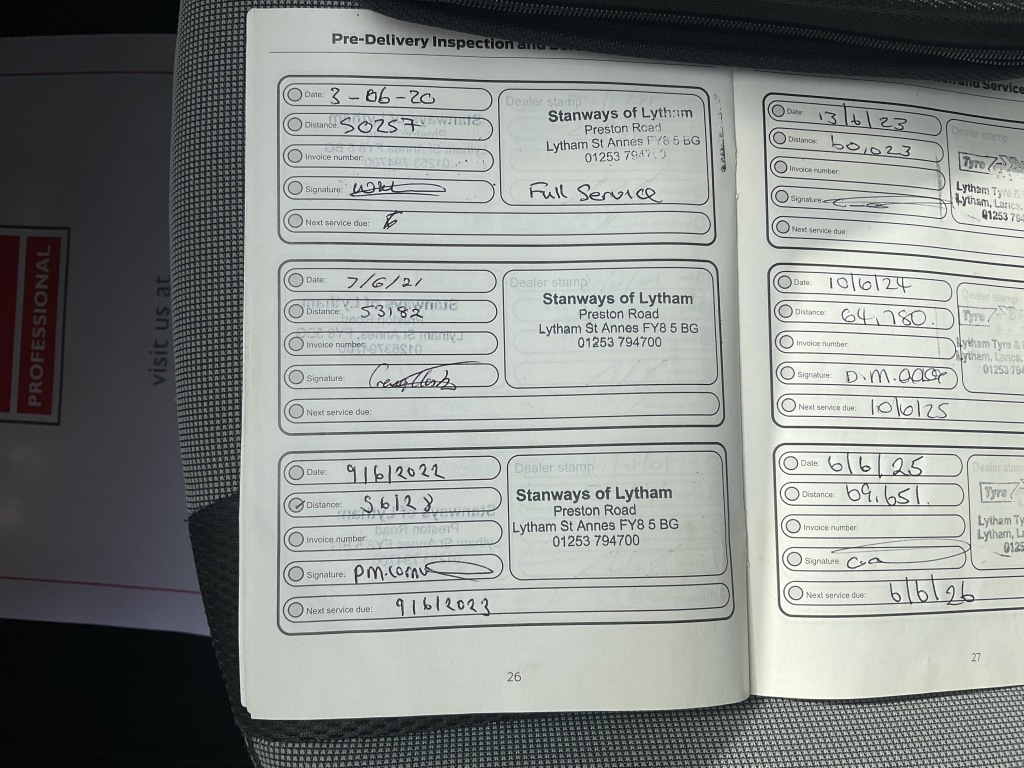 PROFESSIONAL
visit us at
Pre-Delivery Inspection and
Date: 3-06-20
Distance: 50257
Invoice number:
Signature:
Next service due:
Dealer stamp
Stanways of Lytham
Preston Road
Lytham St Annes FY8 5 BG
01253
Full Service
Date: 7/6/21
Distance: 53182
Invoice number:
Signature:
Next service due:
Dealer stamp
Stanways of Lytham
Preston Road
Lytham St Annes FY8 5 BG
01253 794700
Date: 9/6/2022
Distance: 56128
Invoice number:
Signature:
Next service due: 9/6/2023
Dealer stamp
Stanways of Lytham
Preston Road
Lytham St Annes FY8 5 BG
01253 794700
26
and Service
Date: 13/6/23
Distance: 60,023
Invoice number:
Signature:
Next service due:
Dealer stamp
Tyre
Lytham Tyre &
Lytham, Lancs.
01253 794
Date: 10/6/24
Distance: 64,780.
Invoice number:
Signature: D.M.
Next service due: 10/6/25
Dealer stamp
Tyre
Lytham Tyre &
Lytham, Lancs.
01253 794
Date: 6/6/25
Distance: 69,651.
Invoice number:
Signature:
Next service due: 6/6/26
Dealer stam
Tyre
Lytham Ty
Lytham, La
0125
27